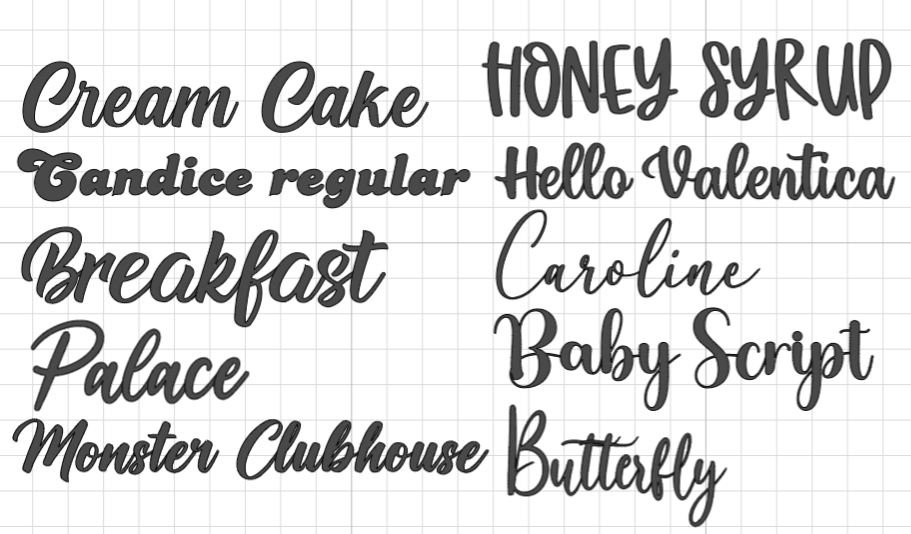 Cream Cake
Candice regular
Breakfast
Palace
Monster Clubhouse
HONEY SYRUP
Hello Valentica
Caroline
Baby Script
Butterfly